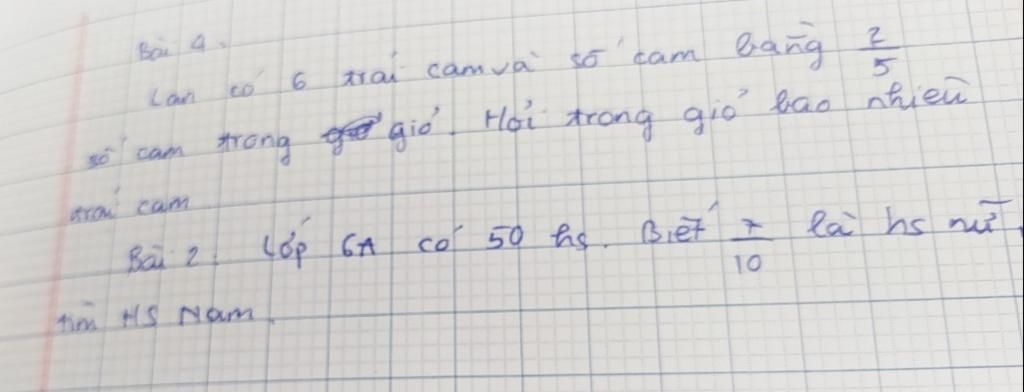 Bài 1.
Lan có 6 trái cam và số cam bằng 2/5
số cam trong giỏ. Hỏi trong giỏ bao nhiêu
trái cam
Bài 2. Lớp 6A có 50 hs. Biết 7/10 là hs nữ.
tìm HS Nam.